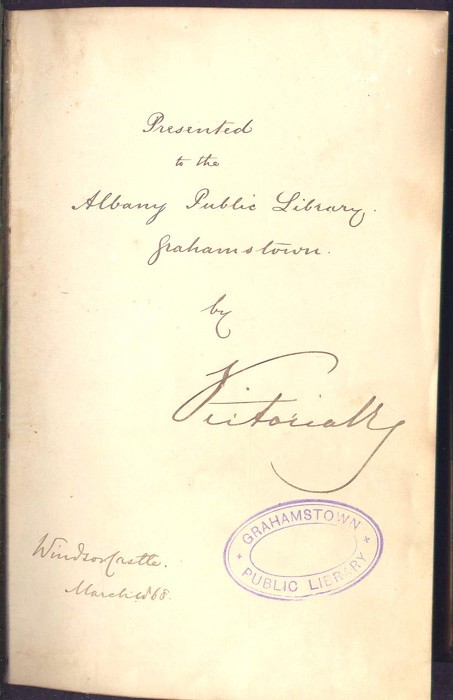 Presented
to the
Albany Public Library.
Grahamstown.
by
Victoria R
GRAHAMSTOWN
PUBLIC LIBRARY
Windsor Castle.
March 1868.